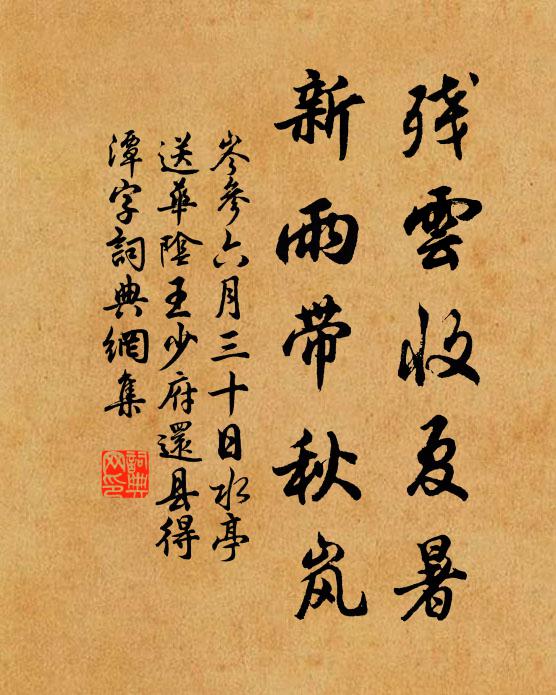 残雲收夏暑
新雨带秋岚
岑參六月三十日水亭
送華陰王少府還县得
潭字詞典網集
詞典
网印